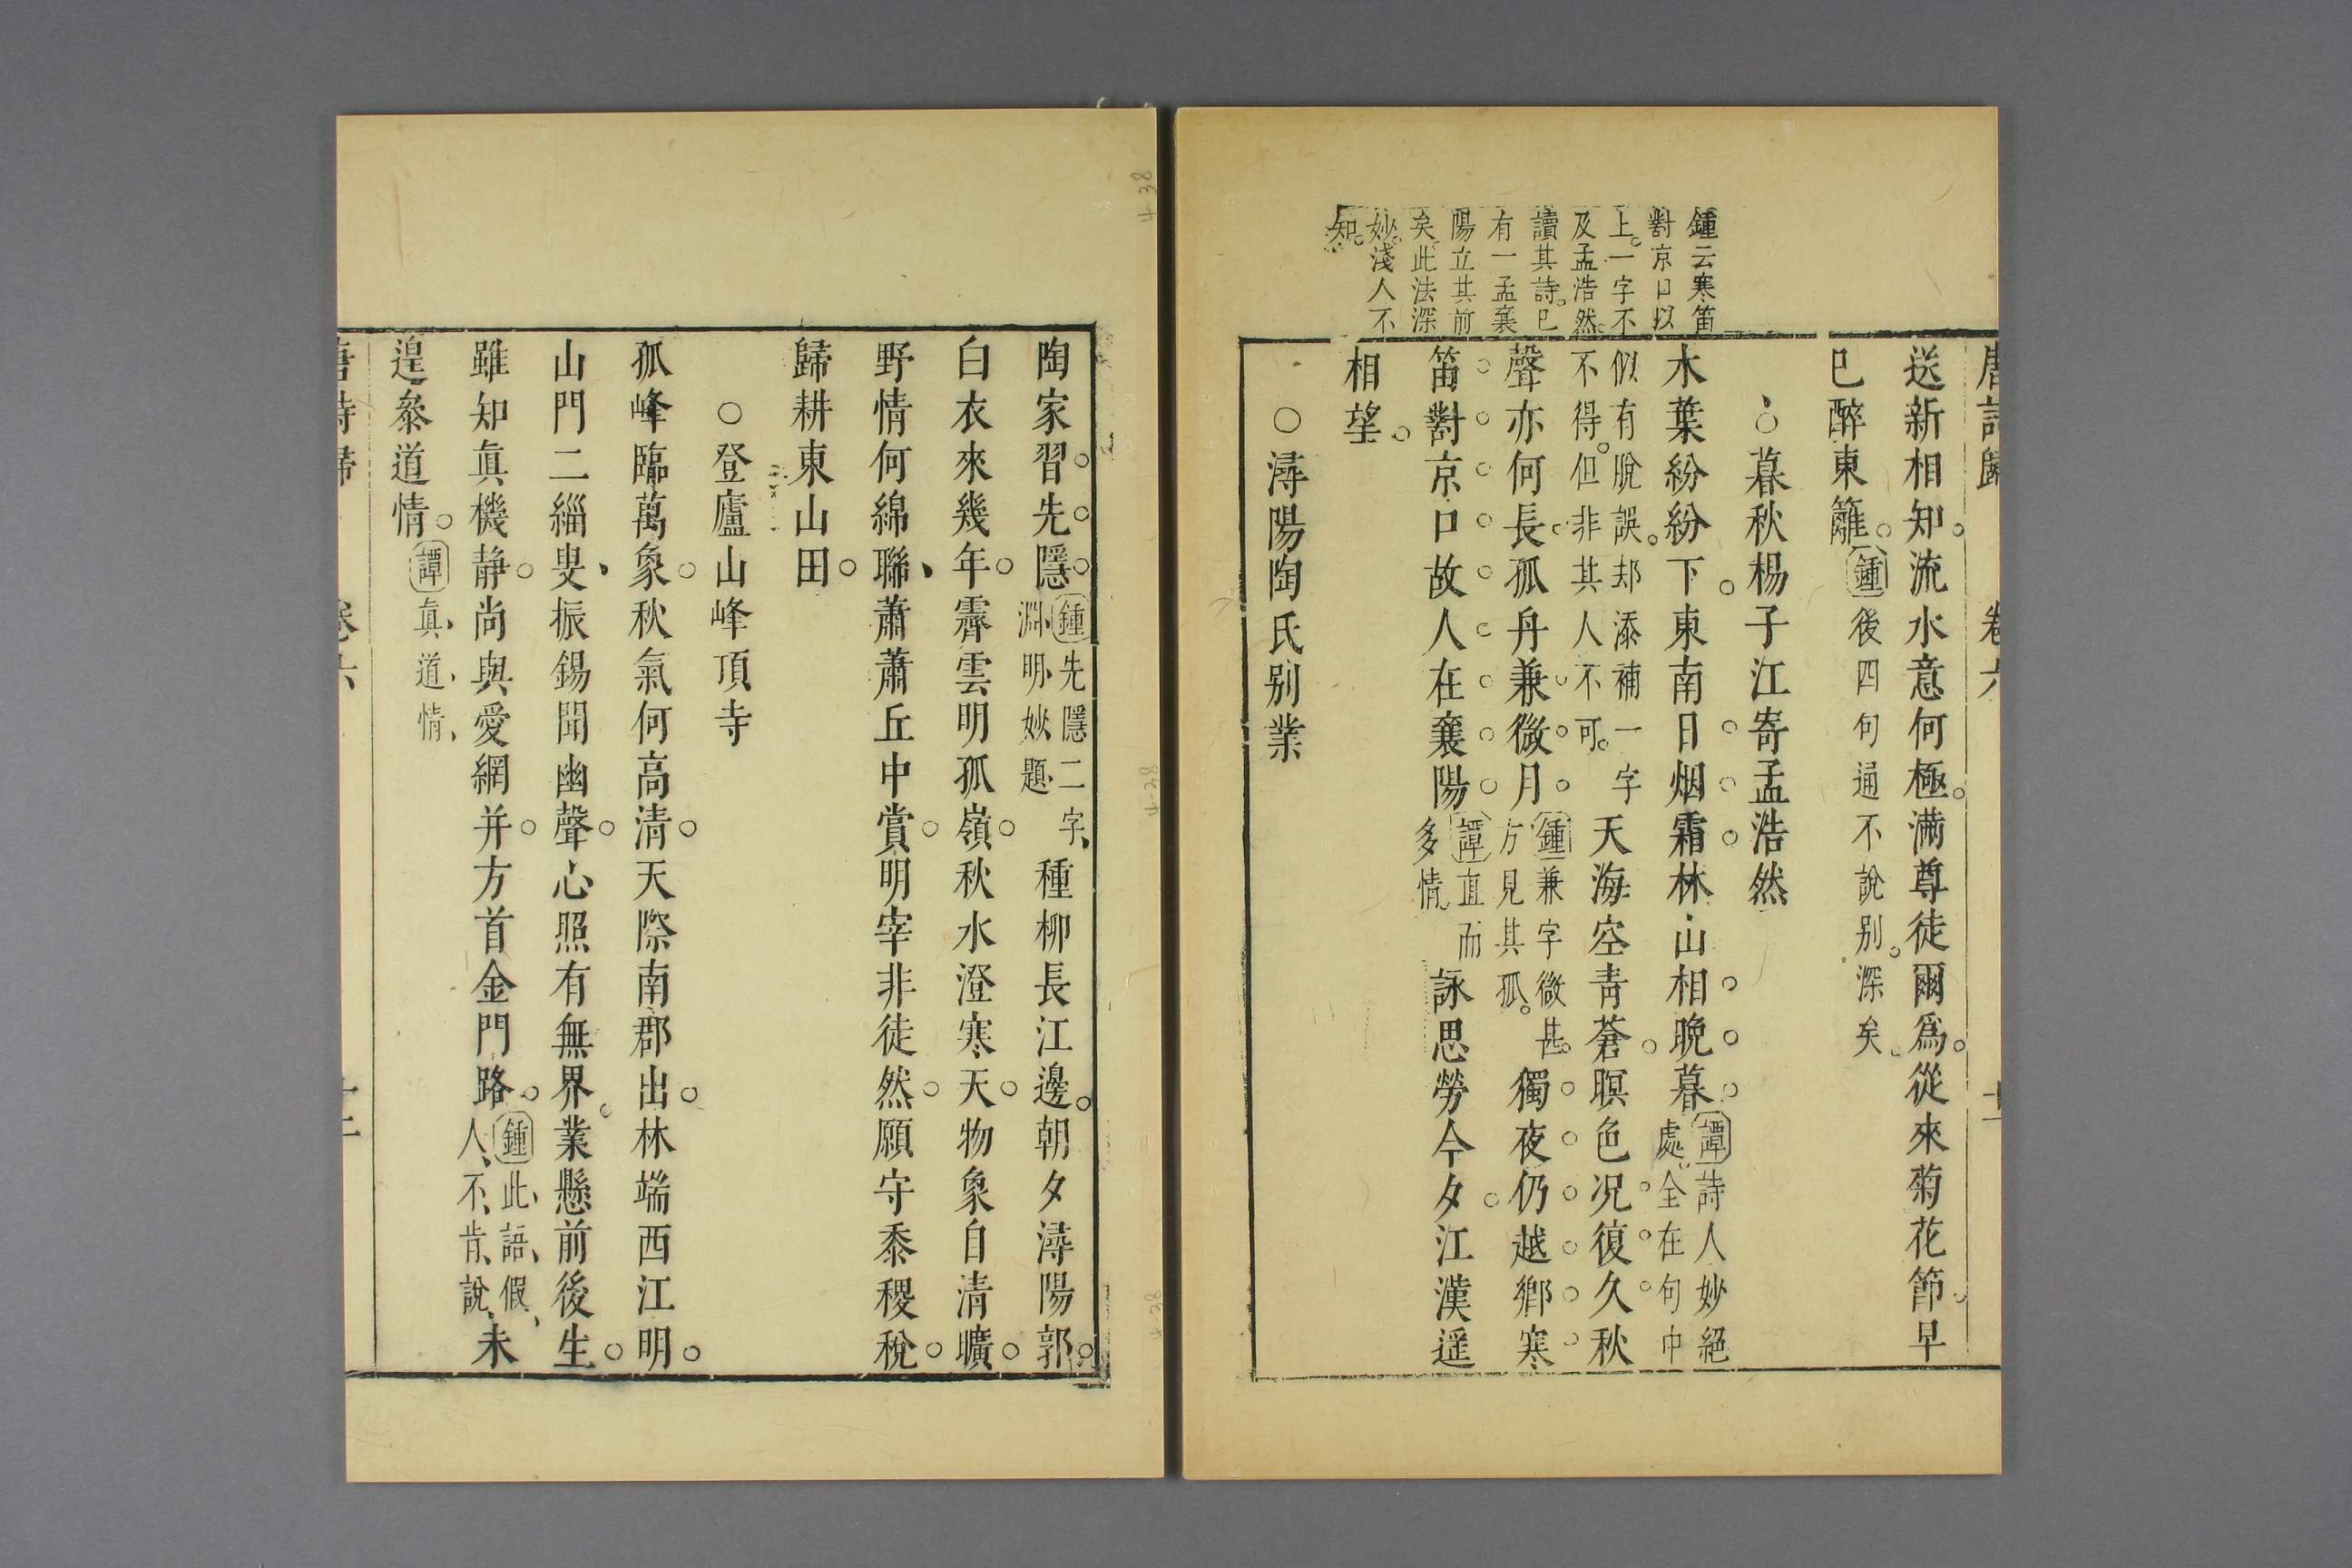 唐詩歸　卷六
鍾云寒笛
對京口以
上。一字不
及孟浩然。
讀其詩。已
有一孟襄
陽立其前
矣。此法深
妙。淺人不
知。
送新相知。流水意何極。滿尊徒爾爲。從來菊花節。早
已醉東籬。鍾後四句通不說別。深矣。
○暮秋楊子江寄孟浩然
木葉紛紛下。東南日烟霜。林山相晚暮。譚詩人妙絕處。全在句中
似有脫誤。却添補一字不得。但非其人不可。天海空青蒼。暝色况復久。秋
聲亦何長。孤舟兼微月。鍾兼字微甚。方見其孤。獨夜仍越鄉。寒
笛對京口。故人在襄陽。譚直而多情。詠思勞今夕。江漢遥
相望。
○潯陽陶氏别業
陶家習先隱。鍾先隱二字、淵明妙題。種柳長江邊。朝夕潯陽郭。
白衣來幾年。霽雲明孤嶺。秋水澄寒天。物象自清曠。
野情何綿聯、蕭蕭丘中賞。明宰非徒然。願守黍稷稅。
歸耕東山田。
○登廬山峰頂寺
孤峰臨萬象。秋氣何高清。天際南郡出。林端西江明。
山門二緇叟、振錫聞幽聲。心照有無界。業懸前後生。
雖知真機静。尚與愛網并。方首金門路。鍾此、語、假、人、不、肯、說、未
遑叅道情。譚真、道、情、
唐詩歸　卷六